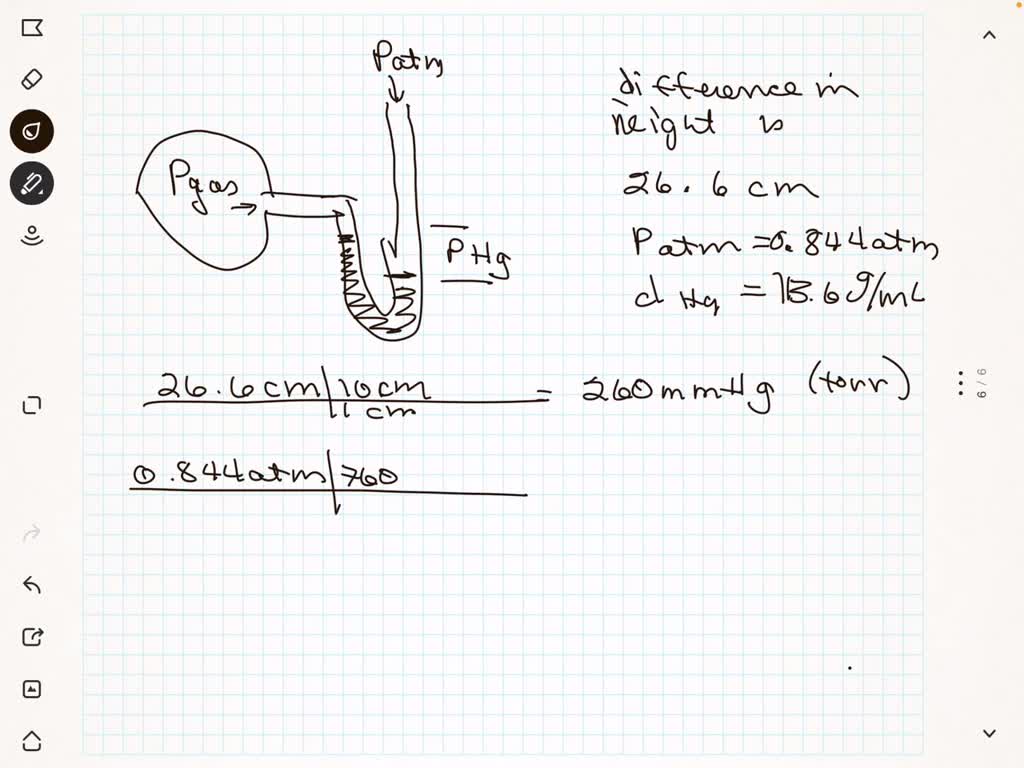 Patm
Pgas
PHg
difference in
height is
26.6 cm
Patm = 0.844 atm
d Hg = 13.6 g/mL
26.6 cm | 10 cm = 260 mmHg (torr)
1 cm
0.844 atm | 760
9 / 9